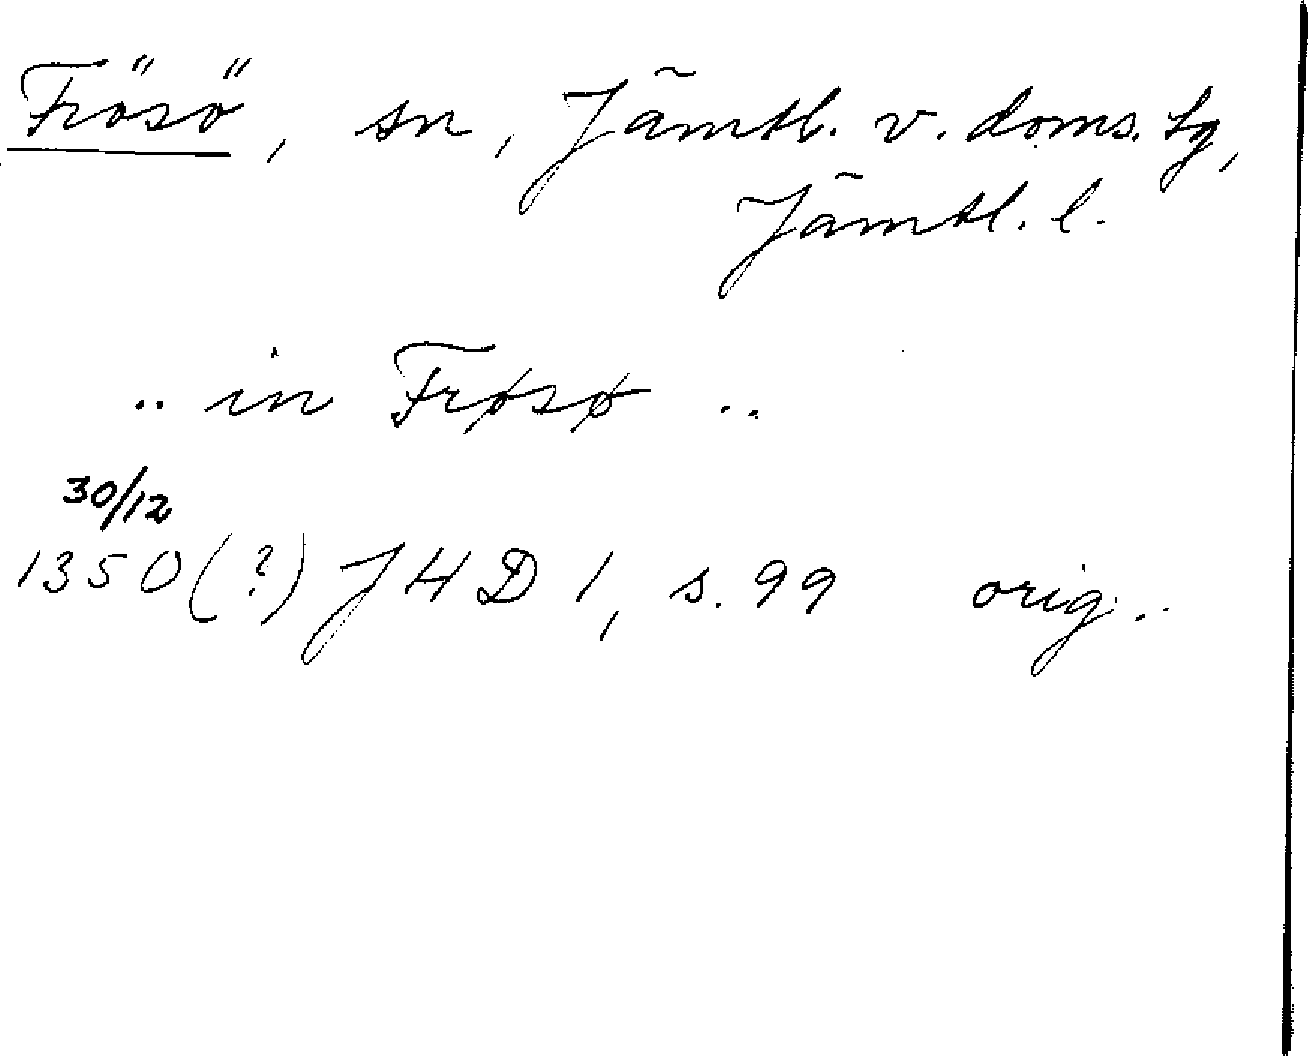 Frösö, sn, Jämtl. v. doms. tg,
Jämtl. l.
.. in Frøsø ..
30/12
1350(?) JHD 1, s. 99 orig..